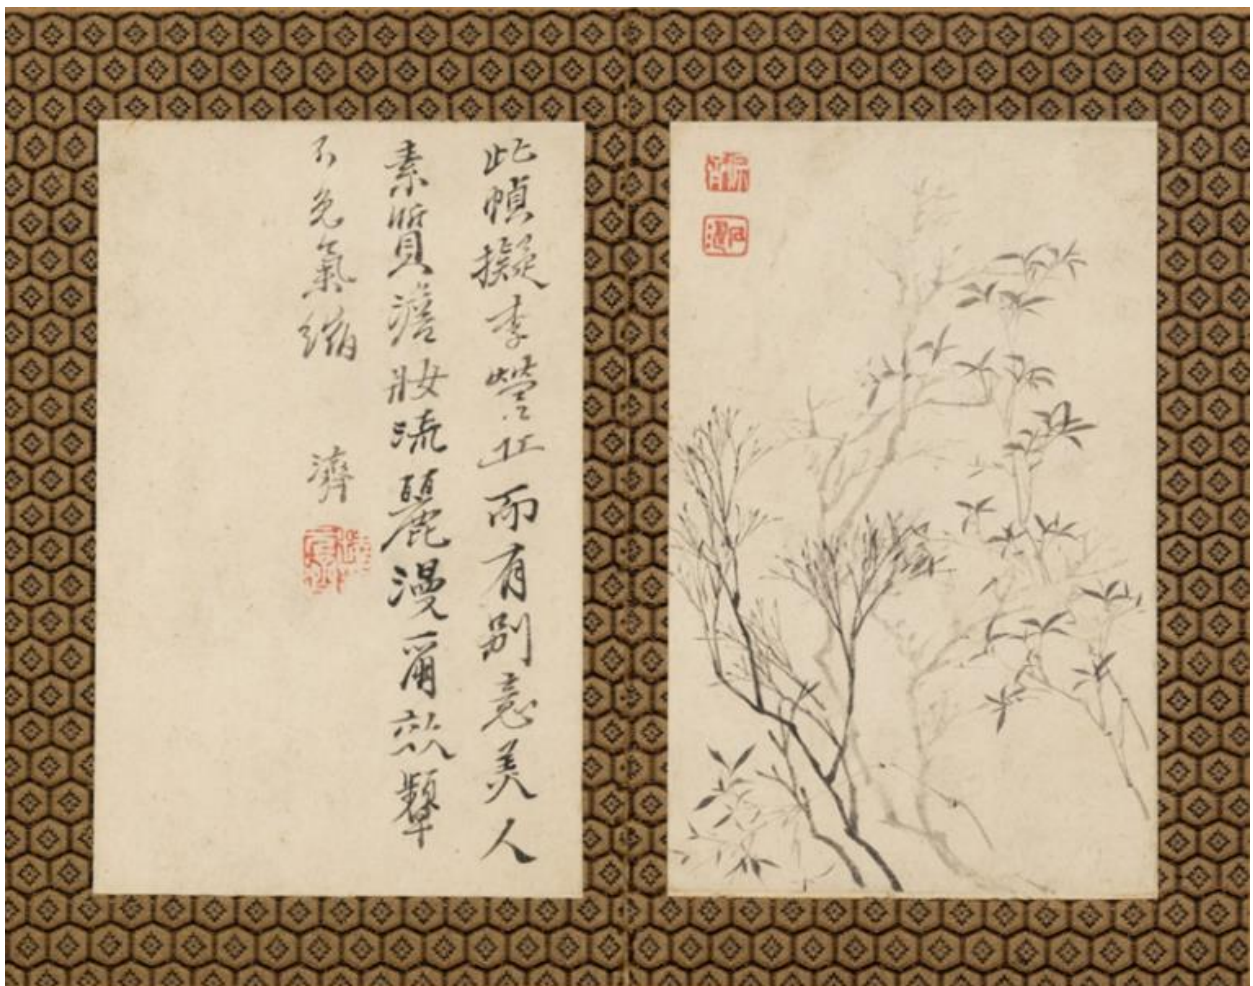 石濤
此幀擬李營丘而有別意美人
素質澹妝流麗漫爾效顰
不免氣縮
濟